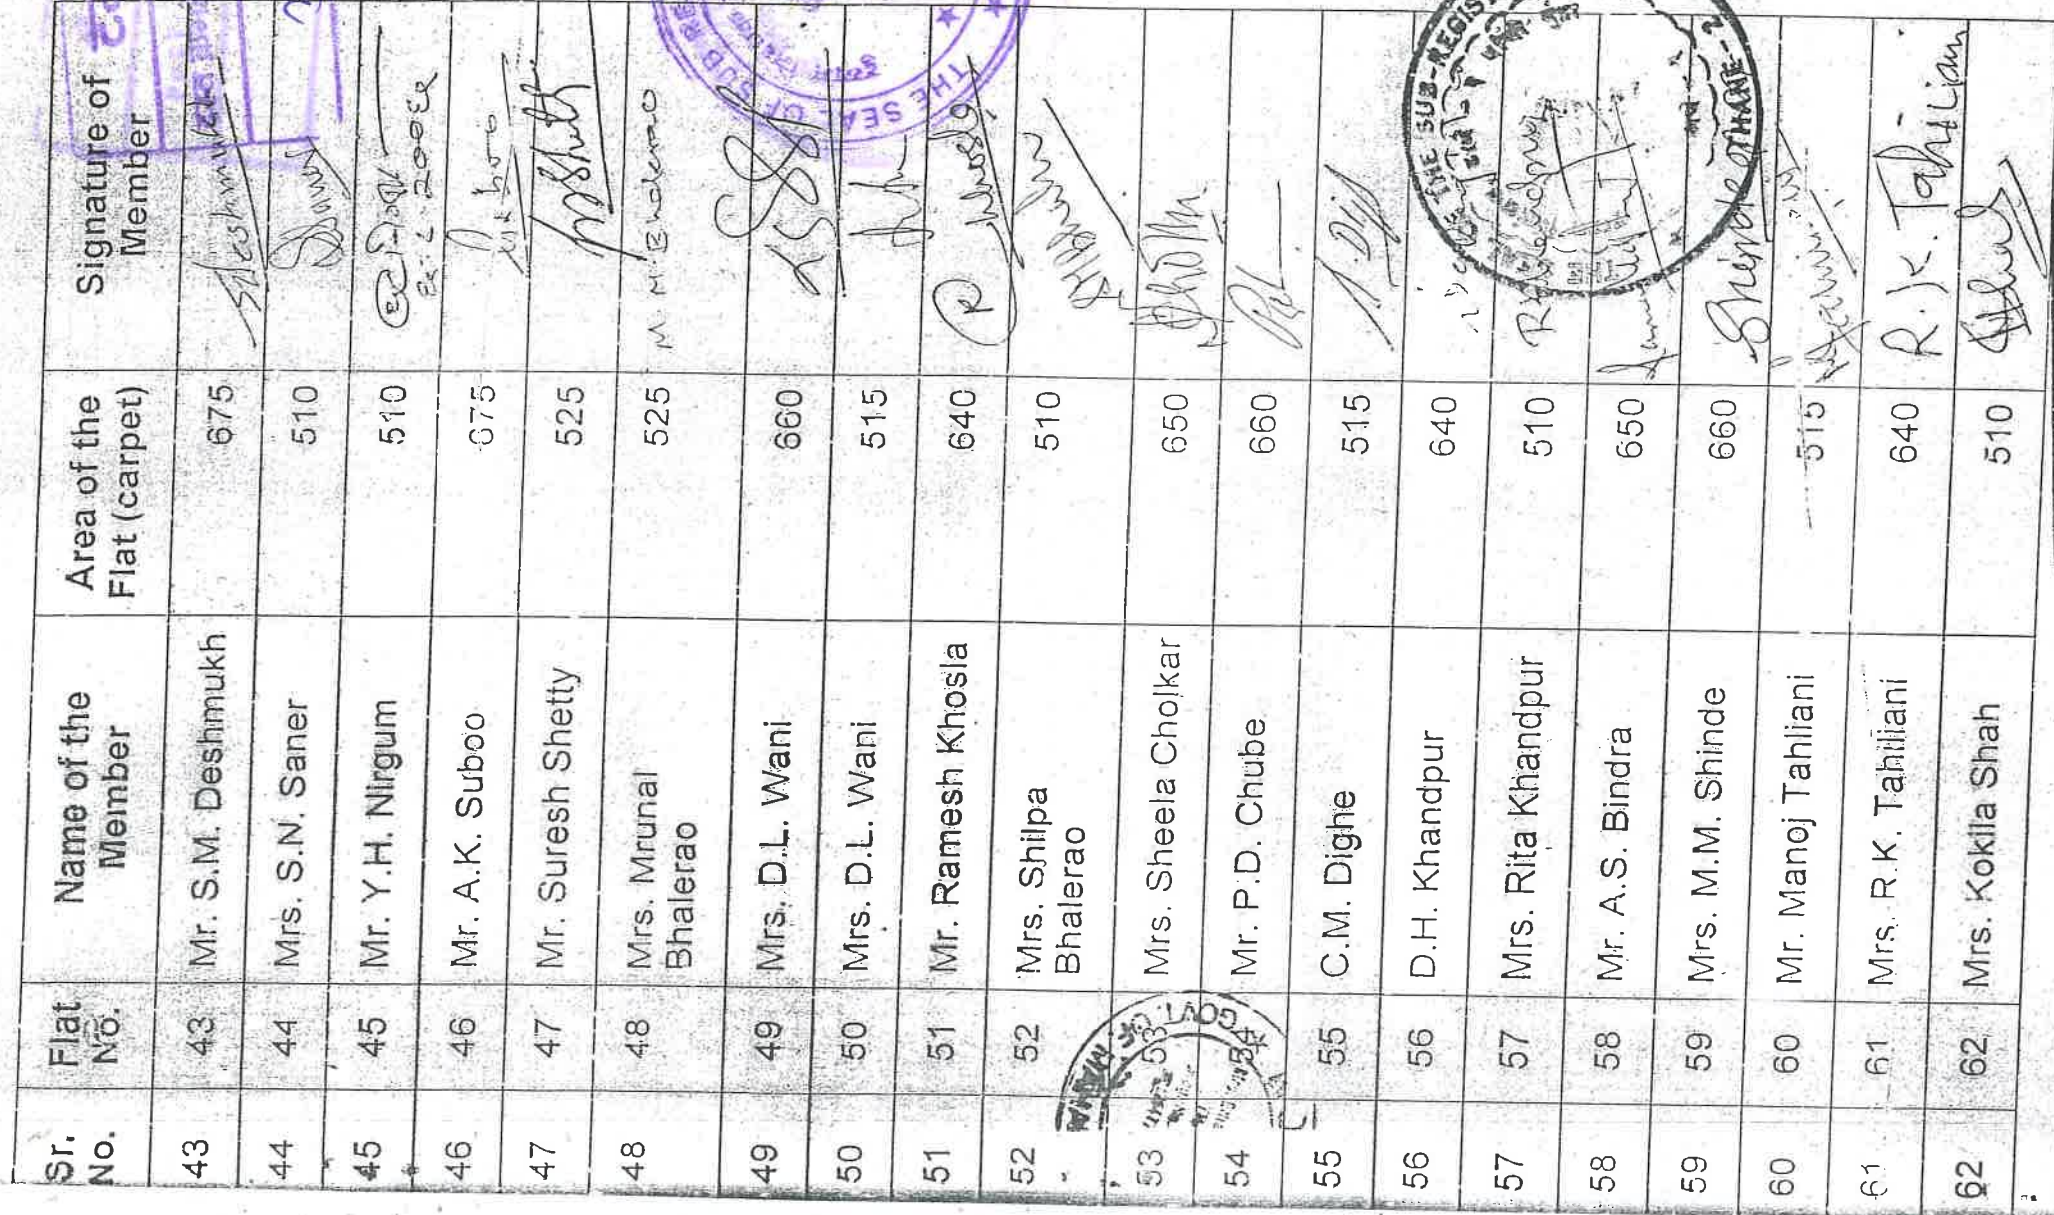 Sr. No. Flat No. Name of the Member Area of the Flat (carpet) Signature of Member
43 43 Mr. S.M. Deshmukh 675
44 44 Mrs. S.N. Saner 510
45 45 Mr. Y.H. Nirgum 510
46 46 Mr. A.K. Suboo 675
47 47 Mr. Suresh Shetty 525
48 48 Mrs. Mrunal Bhalerao 525 M. M. Bhalerao
49 49 Mrs. D.L. Wani 660
50 50 Mrs. D.L. Wani 515
51 51 Mr. Ramesh Khosla 640
52 52 Mrs. Shilpa Bhalerao 510
53 53 Mrs. Sheela Cholkar 650
54 54 Mr. P.D. Chube 660
55 55 C.M. Dighe 515
56 56 D.H. Khandpur 640
57 57 Mrs. Rita Khandpur 510
58 58 Mr. A.S. Bindra 650
59 59 Mrs. M.M. Shinde 660 Shinde
60 60 Mr. Manoj Tahliani 515
61 61 Mrs. R.K. Tahiliani 640 R.K. Tahiliani
62 62 Mrs. Kokila Shah 510
THE SEAL OF SUB RE
THE SUB-REGIS
THANE-2
GOVT. OF MAHA